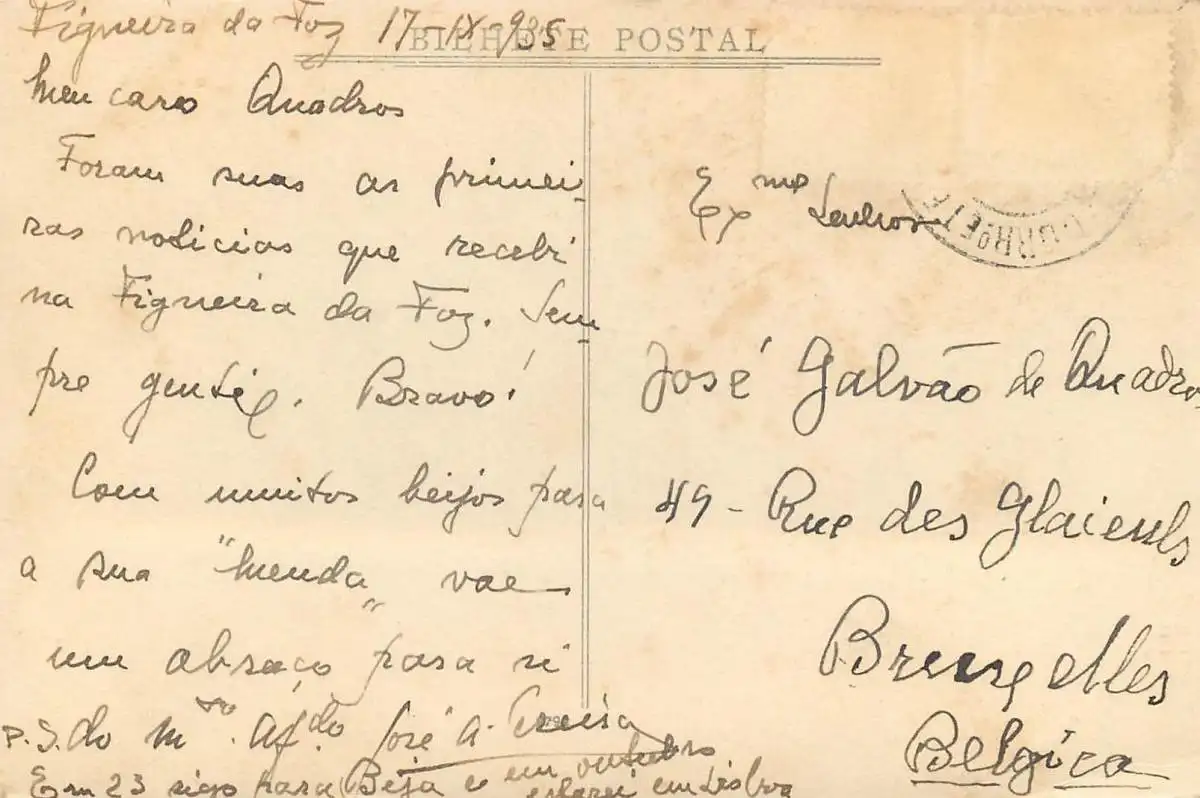 Figueira da Foz 17-IX-935
BILHETE POSTAL
Meu caro Quadros
Foram suas as primei-
ras noticias que recebi
na Figueira da Foz. Sem-
pre gentil. Bravo!
Com muitos beijos para
a sua "Menda" vae
um abraço para si
do mto. afdo. José A.
P.S.
Em 23 sigo para Beja e em outubro
estarei em Lisboa
Exmo Senhor
José Galvão de Quadros
49 - Rue des Glaieuls
Bruxelles
Belgica